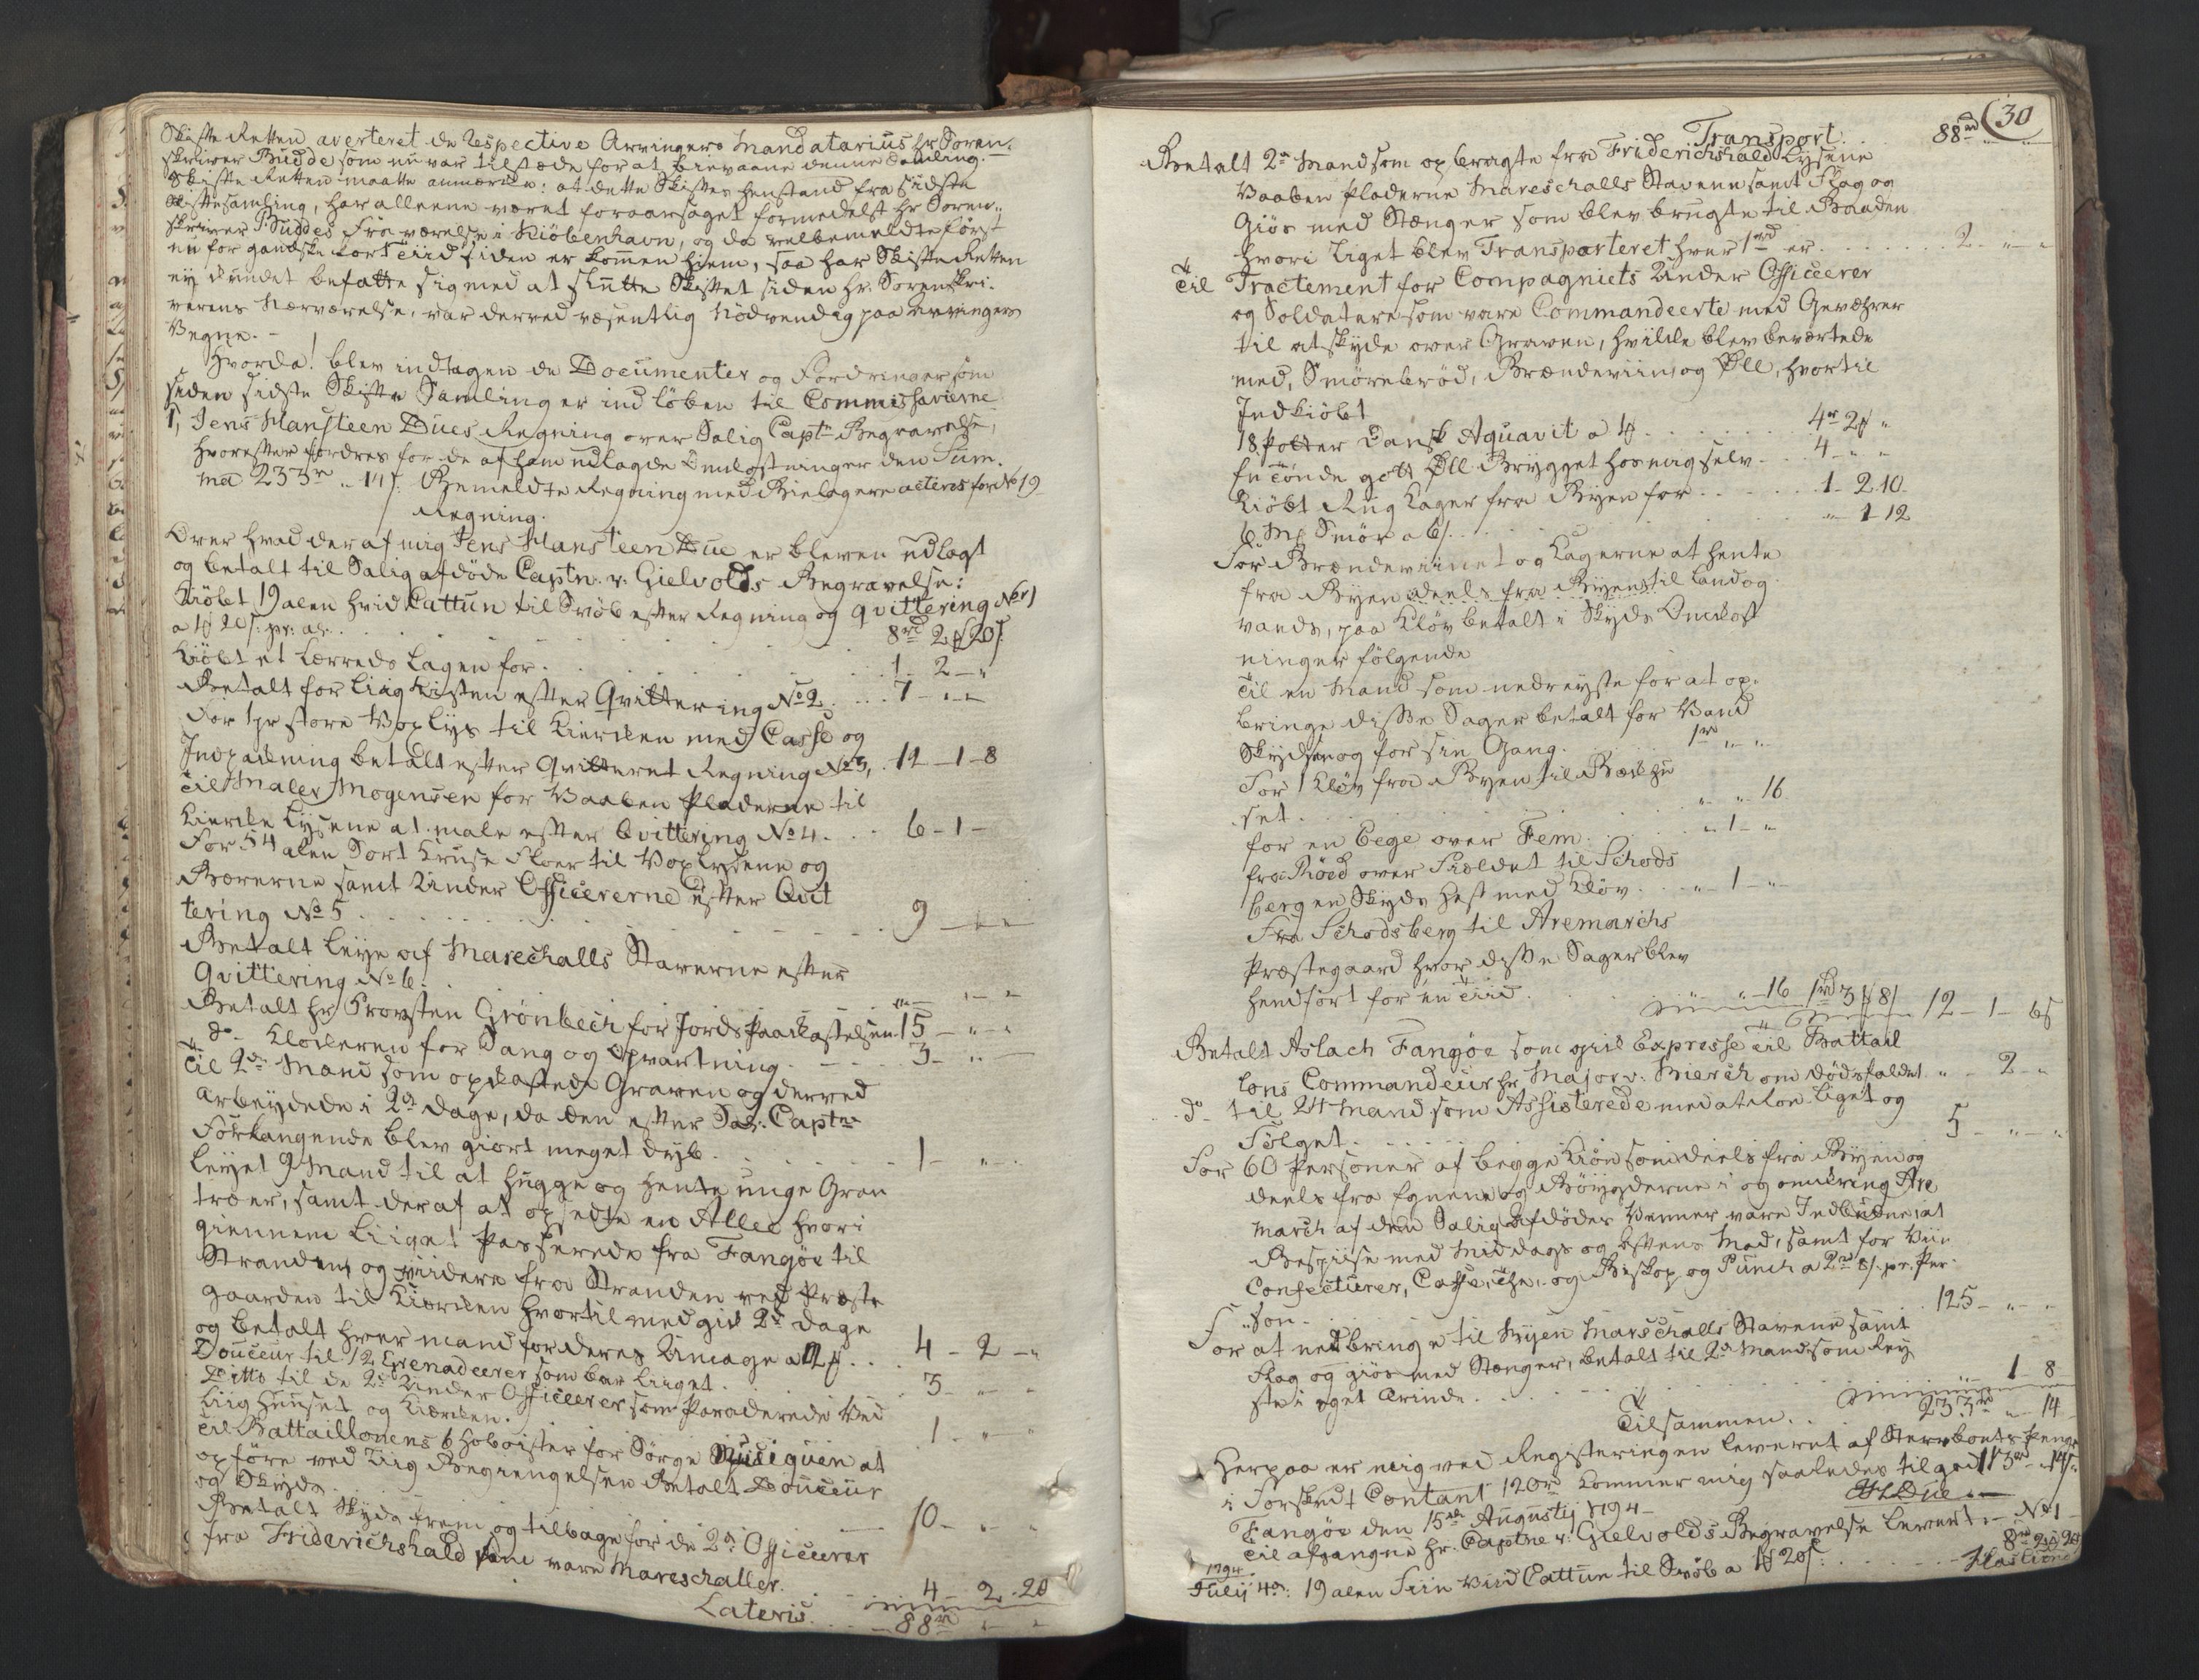 Skifte Retten averteret de Respective Arvingers Mandatarius hr Soren-
skriver Budde som nu var tilstæde for at bievaane denne Samling. -
Skifte Retten maatte anmærke: at dette Skiftes henstand fra sidste
Skiftesamling, har alleene været foraarsaget formedelst hr Soren-
skriver Buddes Fraværelse i Kiöbenhavn, og da velbemeldte först
nu for gandske kort Tiid siden er kommen hiem, saa har Skifte Retten
ey kundet befatte sig med at slutte Skiftet siden hr. Sorenskri-
verens Nærværelse, var derved væsentlig Nödvendig paa Arvingers
Vegne. -
Hvorda! blev indtagen de Documenter og Fordringer som
siden sidste Skifte Samling er indlöben til Commissarierne
1, Jens Hansteen Dües Regning over Salig Captn Begravelse,
hvorefter fordres for de af ham udlagde Omkostninger den Sum-
ma 233rd „ 14s. Bemeldte Regning med Bielagene acteres for No 19
Regning.
Over hvad der af mig Jens Hansteen Düe er bleven udlagt
og betalt til Salig afdöde Captn. v. Gielvolds Begravelse:
Kiöbt 19 alen hvid Cattun til Svöb efter Regning og qvittering No 1
a 1 20s. pr. al. . . 8rd 2 20s
Kiöbt et Lærreds Lagen for . . . 1. 2 - „
Betalt for Liig Kisten efter Qvittering No 2 . . . 7 - „ -
For 1 pr store Voxlys til Kierken med Casse og
Indpakning betalt efter Qvitteret Regning No 3, . 12 - 1 - 8
Til Maler Mogensen for Vaaben Pladerne til
Kierke Lysene at male efter Qvittering No 4. . . 6 - 1 -
For 54 alen Sort Kruse Floer til Voxlysene og
Bærerne samt Under Officererne efter Qvit
tering No 5 . . . 9 - „ -
Betalt Leye af Mareschalls Staverne efter
Qvittering No 6. . . . „ - „ - „
Betalt hr Provsten Grönbech for Jords Paakastelsen 15 - „ - „
do Klokeren for Sang og Opvartning . . . 3 - „ -
Til 2de Mand som opkastede Graven og derved
Arbeydede i 2de Dage, da den efter Sal. Captns
Forlangende blev giort meget dyb. . . . 1 - „ -
Leyet 9 Mand til at hugge og hente unge Gran
træer, samt deraf at opsette en Allee hvori
giennem Liiget Passerede fra Fangöe til
Stranden, og viidere fra Stranden ved Præste
gaarden til Kierken hvortil medgik 2de Dage
og betalt hver mand for deres Umage a 2 . . . 4 - 2 - „
Douceur til 12 Grenadeerer som bar Liiget . . . 3 - „ -
Ditto til de 2de Under Officeerer som Paraderede Ved
Liig Huuset og Kierken. . . . 1 - „ -
Til Battaillonens 6 Hoboister for Sörge Musiquen at
opföre ved Liig Begiengelsen Betalt Douceur
og Skyds . . . 10 - „ -
Betalt Skyds frem og tilbage for de 2de Officeerer
fra Friderichshald som vare Mareschaller. . . . 4 - 2 - 20
Lateris . . . 88rd „ - „
30
Transport . . 88rd „ - „
Betalt 2de Mand som opbragte fra Friderichshald Lysene
Vaaben Pladerne Mareschalls Stavene samt Flag og
Giös med Stænger som blev brugte til Baaden
hvori Liget blev Transporteret hver 1rd er . . . 2 - „ - „
Til Tractement for Compagniets Under Officeerer
og Soldatere som vare Commandeerte med Geværer
til at skyde over Graven, hvilke blev beværtede
med, Smörrebröd, Brændeviin og Öll, hvortil
Indkiöbt
18 Potter Dansk Aquavit a 1 . . . 4rd 2 „
En Tönde godt Öll Brygget hos mig selv . . . 4 - „ „
Kiöbt Rug Kager fra Byen for . . . 1 - 2. 10
6 Mk Smör a 6s . . . „ - 1 12
For Brændeviinet og Kagerne at hente
fra Byen deels fra Byen til Land og
vands, paa Klöv betalt i Skyds Omkost
ninger fölgende
Til en Mand som nedreyste for at op-
bringe disse Sager betalt for Vand
Skydsen og for sin Gang. . . 1rd „ „
For 1 Klöv fra Byen til Bækhu
set . . . „ „ 16
for en Ege over Fem . . . „ 1 - „
fra Röed over Skoldet til Schods
berg en Skyds Hest med Klöv . . . „ 1 - „
Fra Schodsberg til Aremarchs
Præstegaard hvor disse Sager blev
henfört for en Tiid . . . „ - „ - 16 1rd 3 8s 12 - 1 - 6s
Betalt Aslach Fangöe som gik Expresse til Battail
lons Commandeur hr Major v. Bierch om Dödsfaldet . „ - 2 - „
do til 24 Mand som Assisterede med at roe Liget og
Fölget . . . 5 - „ - „
For 60 Personer af begge Kiön som deels fra Byen og
deels fra Egnene og Böygderne i og omkring Are
march af den Salig Afdödes Venner vare Indbudne, at
Bespiise med Middags og Aftens Mad, samt for Viin
Confecturer, Caffe, The, og Biskop og Punch a 2rd 8s. pr. Per-
son . . . 125 - „ - „
For at nedbringe til Byen Marschalls Stavene samt
Flag og giös med Stænger, betalt til 2de Mand som Rey
ste i eget Ærinde . . . „ 1 - 8
Tilsammen . . 233rd „ - 14
Herpaa er mig ved Registeringen leveret af Sterboets Penge
i Forskudt Contant 120rd kommer mig saaledes til gode 113rd „ 14s
Fangöe den 15de Augustij 1794 JHDüe
Til afgangne hr. Captne v. Gielvolds Begravelse Levert. - No 1
1794
Julij 4de: 19 alen Fiin Viid Cattun til Svöb a 1 20s . . . 8rd 2 20